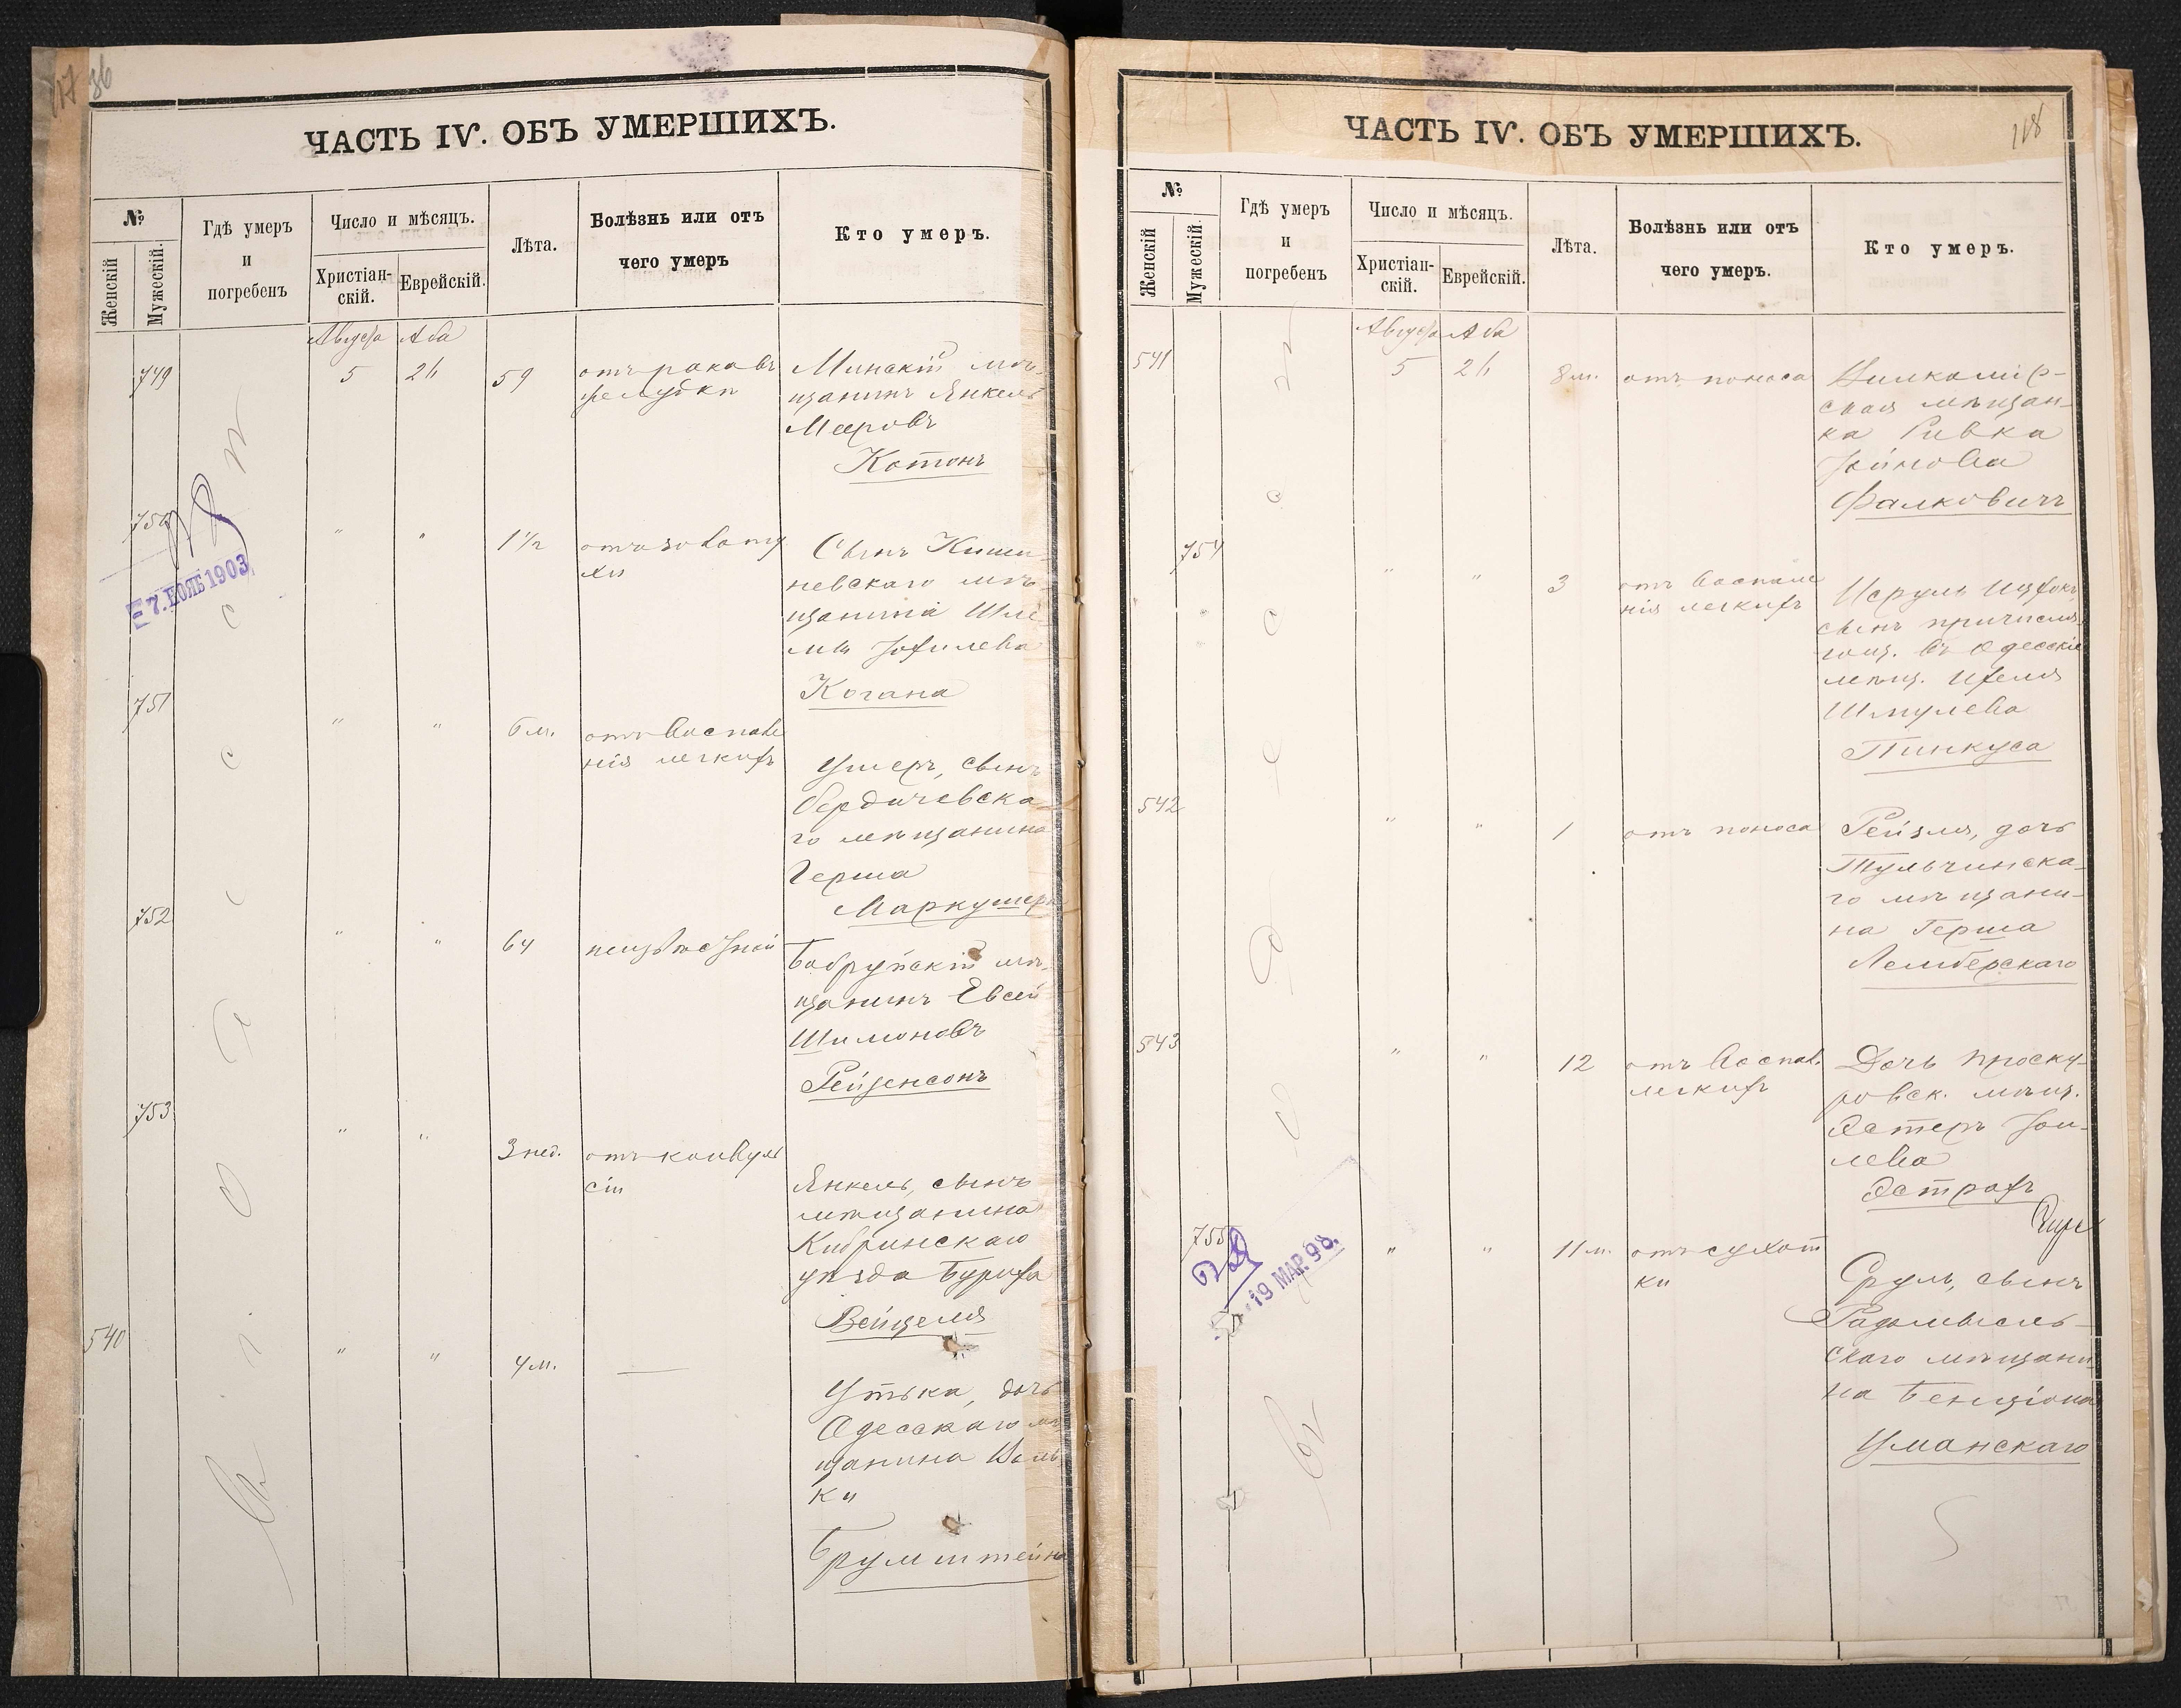 117 36
ЧАСТЬ IV. ОБЪ УМЕРШИХЪ.
№
Женскій
Мужескій.
Гдѣ умеръ
и
погребенъ
Число и мѣсяцъ.
Христіан-
скій.
Еврейскій.
Лѣта.
Болѣзнь или отъ
чего умеръ
Кто умеръ.
въ г. Одессѣ
Августа Аба
749
5
26
59
отъ рака въ
желудки
Минскій мѣ-
щанинъ Янкель
Мееровъ
Котонъ
750
7. НОЯБ 1903
"
"
1½
Сынъ Киши-
невскаго мѣ-
щанина Шлё-
мы
Когана
751
"
"
6 м.
отъ воспале
нія легкихъ
Ушеръ, сынъ
Бердичевска
го мѣщанина
Герша
Маркушера
752
"
"
64
неизвѣстной
Бобруйскій мѣ-
щанинъ Евсей
Шимоновъ
Рейценсонъ
753
"
"
3 нед.
отъ конвуль
сіи
Янкель, сынъ
мѣщанина
Кибринскаго
уѣзда Буриха
Вейцеля
540
"
"
4 м.
—
Утька, дочь
Одесскаго мѣ
щанина Воль
ки
Брумштейна
118
ЧАСТЬ IV. ОБЪ УМЕРШИХЪ.
№
Женскій
Мужескій.
Гдѣ умеръ
и
погребенъ
Число и мѣсяцъ.
Христіан-
скій.
Еврейскій.
Лѣта.
Болѣзнь или отъ
чего умеръ.
Кто умеръ.
въ Одессѣ
Августа Аба
541
5
26
8 м.
отъ поноса
Вилкомир-
ская мѣщан-
ка Ривка
Фалковичъ
754
"
"
3
отъ воспале
нія легкихъ
Исруль Ицхокъ
сынъ причисля-
ющ. въ Одесскіе
мѣщ. Ихеля
Шмулева
Пинкуса
542
"
"
1
отъ поноса
Рейзля, дочь
Тульчинска-
го мѣщани-
на Герша
Лемберскаго
543
"
"
12
отъ воспал.
легкихъ
Дочь проску-
ровск. мѣщ.
Эстеръ Хаи-
лева
Острахъ
755
19 МАР. 98.
"
"
11 м.
отъ сухот
ки
Сруль, сынъ
Радомысль-
скаго мѣщани-
на Бенціона
Уманскаго